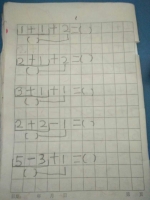 1+1+2=( )
( )
2+1+2=( )
( )
3+1+1=( )
( )
2+2-1=( )
( )
5-3+1=( )
( )